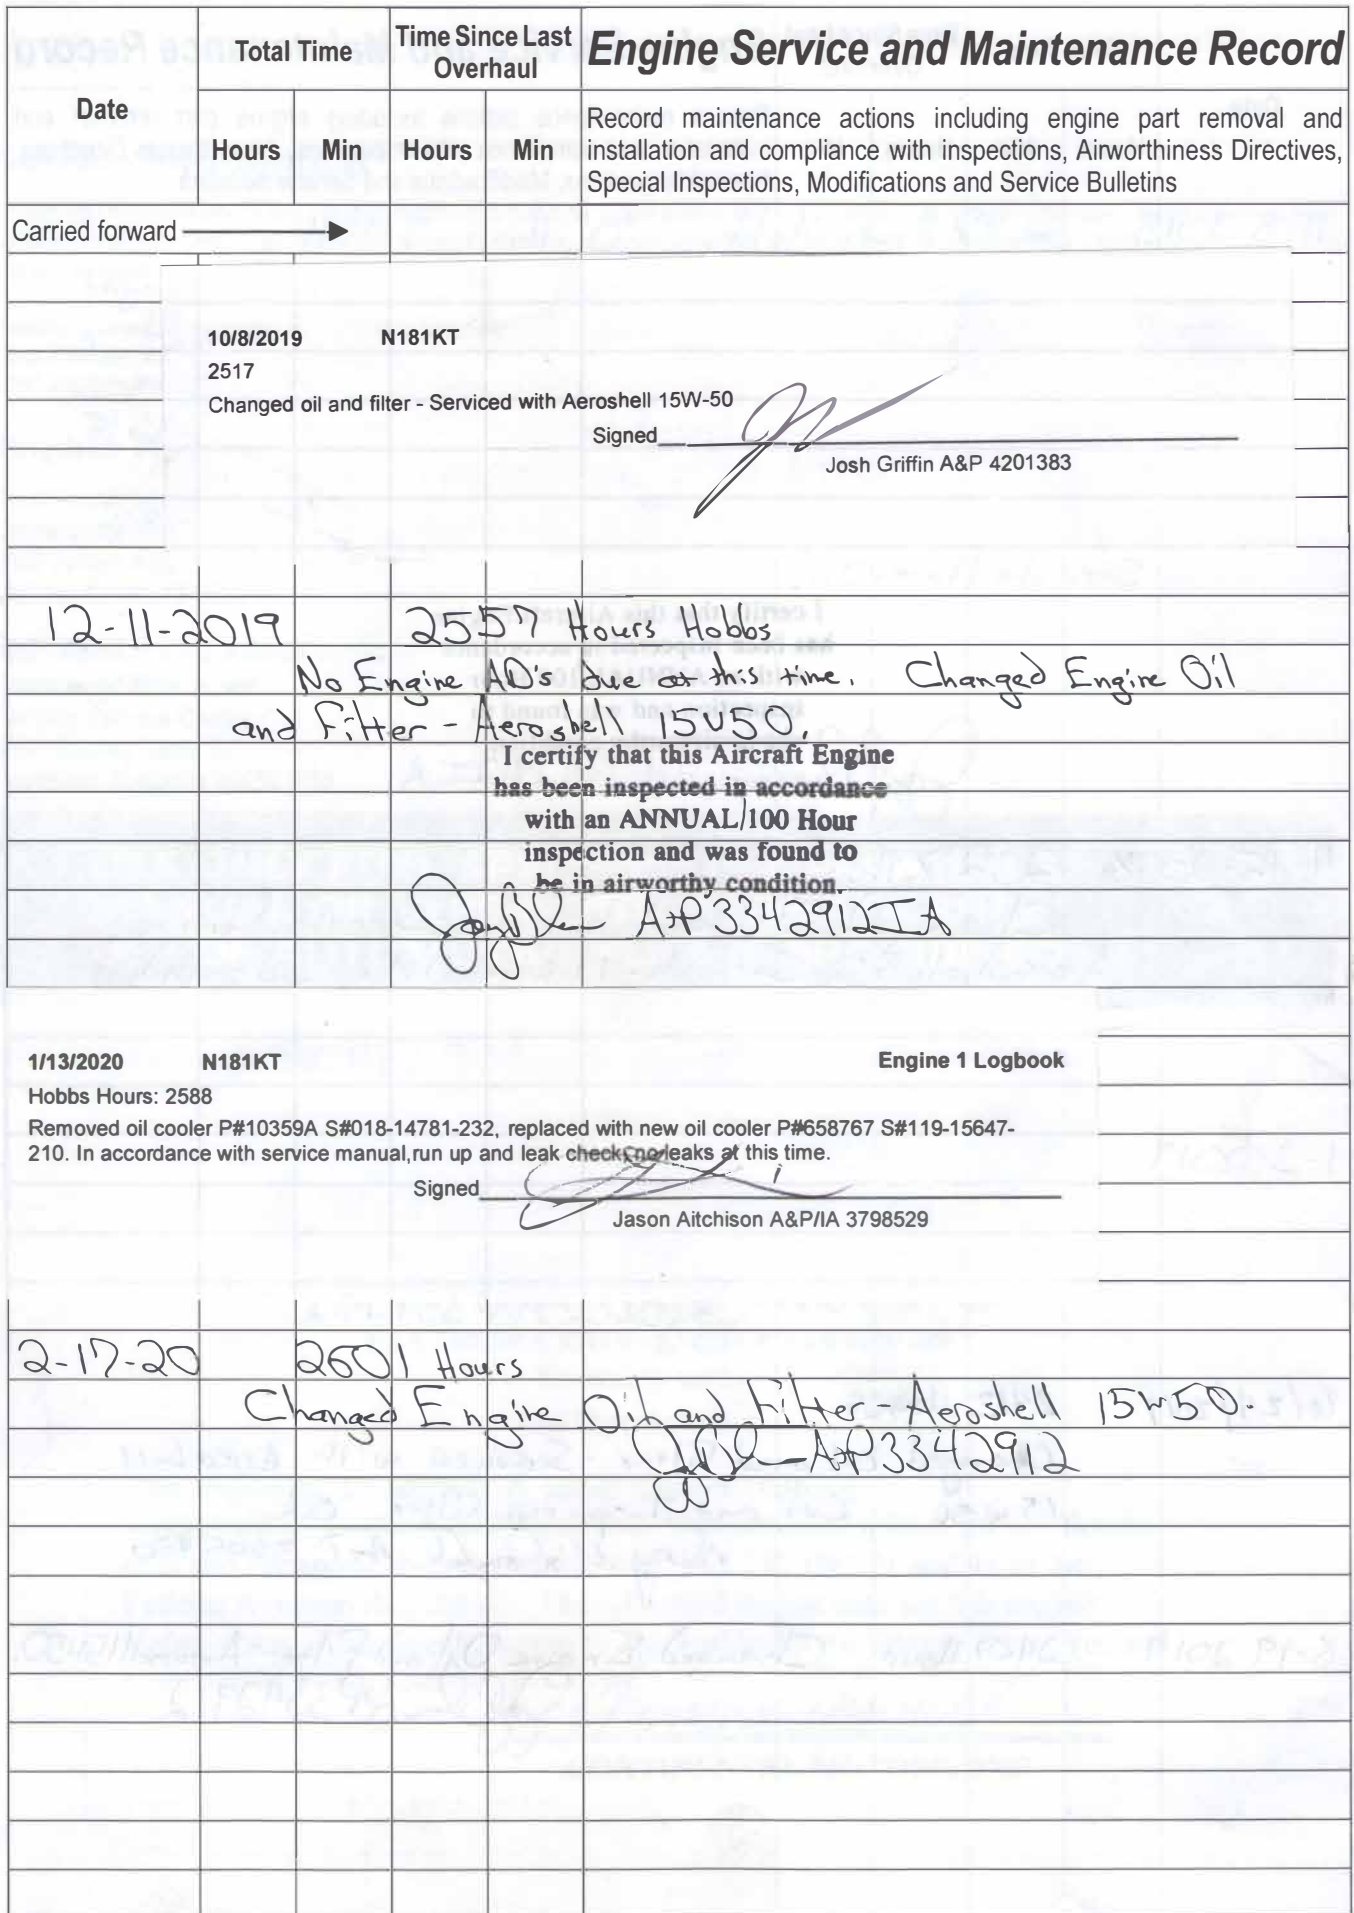 Date
Total Time
Time Since Last Overhaul
Engine Service and Maintenance Record
Hours Min Hours Min
Record maintenance actions including engine part removal and
installation and compliance with inspections, Airworthiness Directives,
Special Inspections, Modifications and Service Bulletins
Carried forward
10/8/2019 N181KT
2517
Changed oil and filter - Serviced with Aeroshell 15W-50
Signed
Josh Griffin A&P 4201383
12-11-2019 2557 Hours Hobbs
No Engine AD's Due at this time. Changed Engine Oil
and Filter - Aeroshell 15W50.
I certify that this Aircraft Engine
has been inspected in accordance
with an ANNUAL/100 Hour
inspection and was found to
be in airworthy condition.
A+P 3342912IA
1/13/2020 N181KT Engine 1 Logbook
Hobbs Hours: 2588
Removed oil cooler P#10359A S#018-14781-232, replaced with new oil cooler P#658767 S#119-15647-
210. In accordance with service manual,run up and leak check, no leaks at this time.
Signed
Jason Aitchison A&P/IA 3798529
2-17-20 2601 Hours
Changed Engine Oil and Filter - Aeroshell 15W50.
A+P 3342912